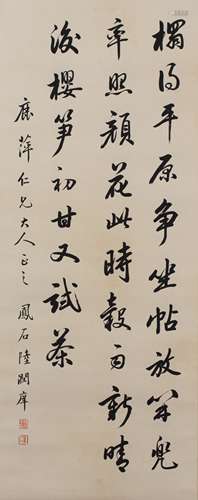 榻得平原争坐帖放兜
率照顏花此時穀雨新晴
後櫻笋初甘又試茶
萍仁兄大人正之 鳳石陸潤庠